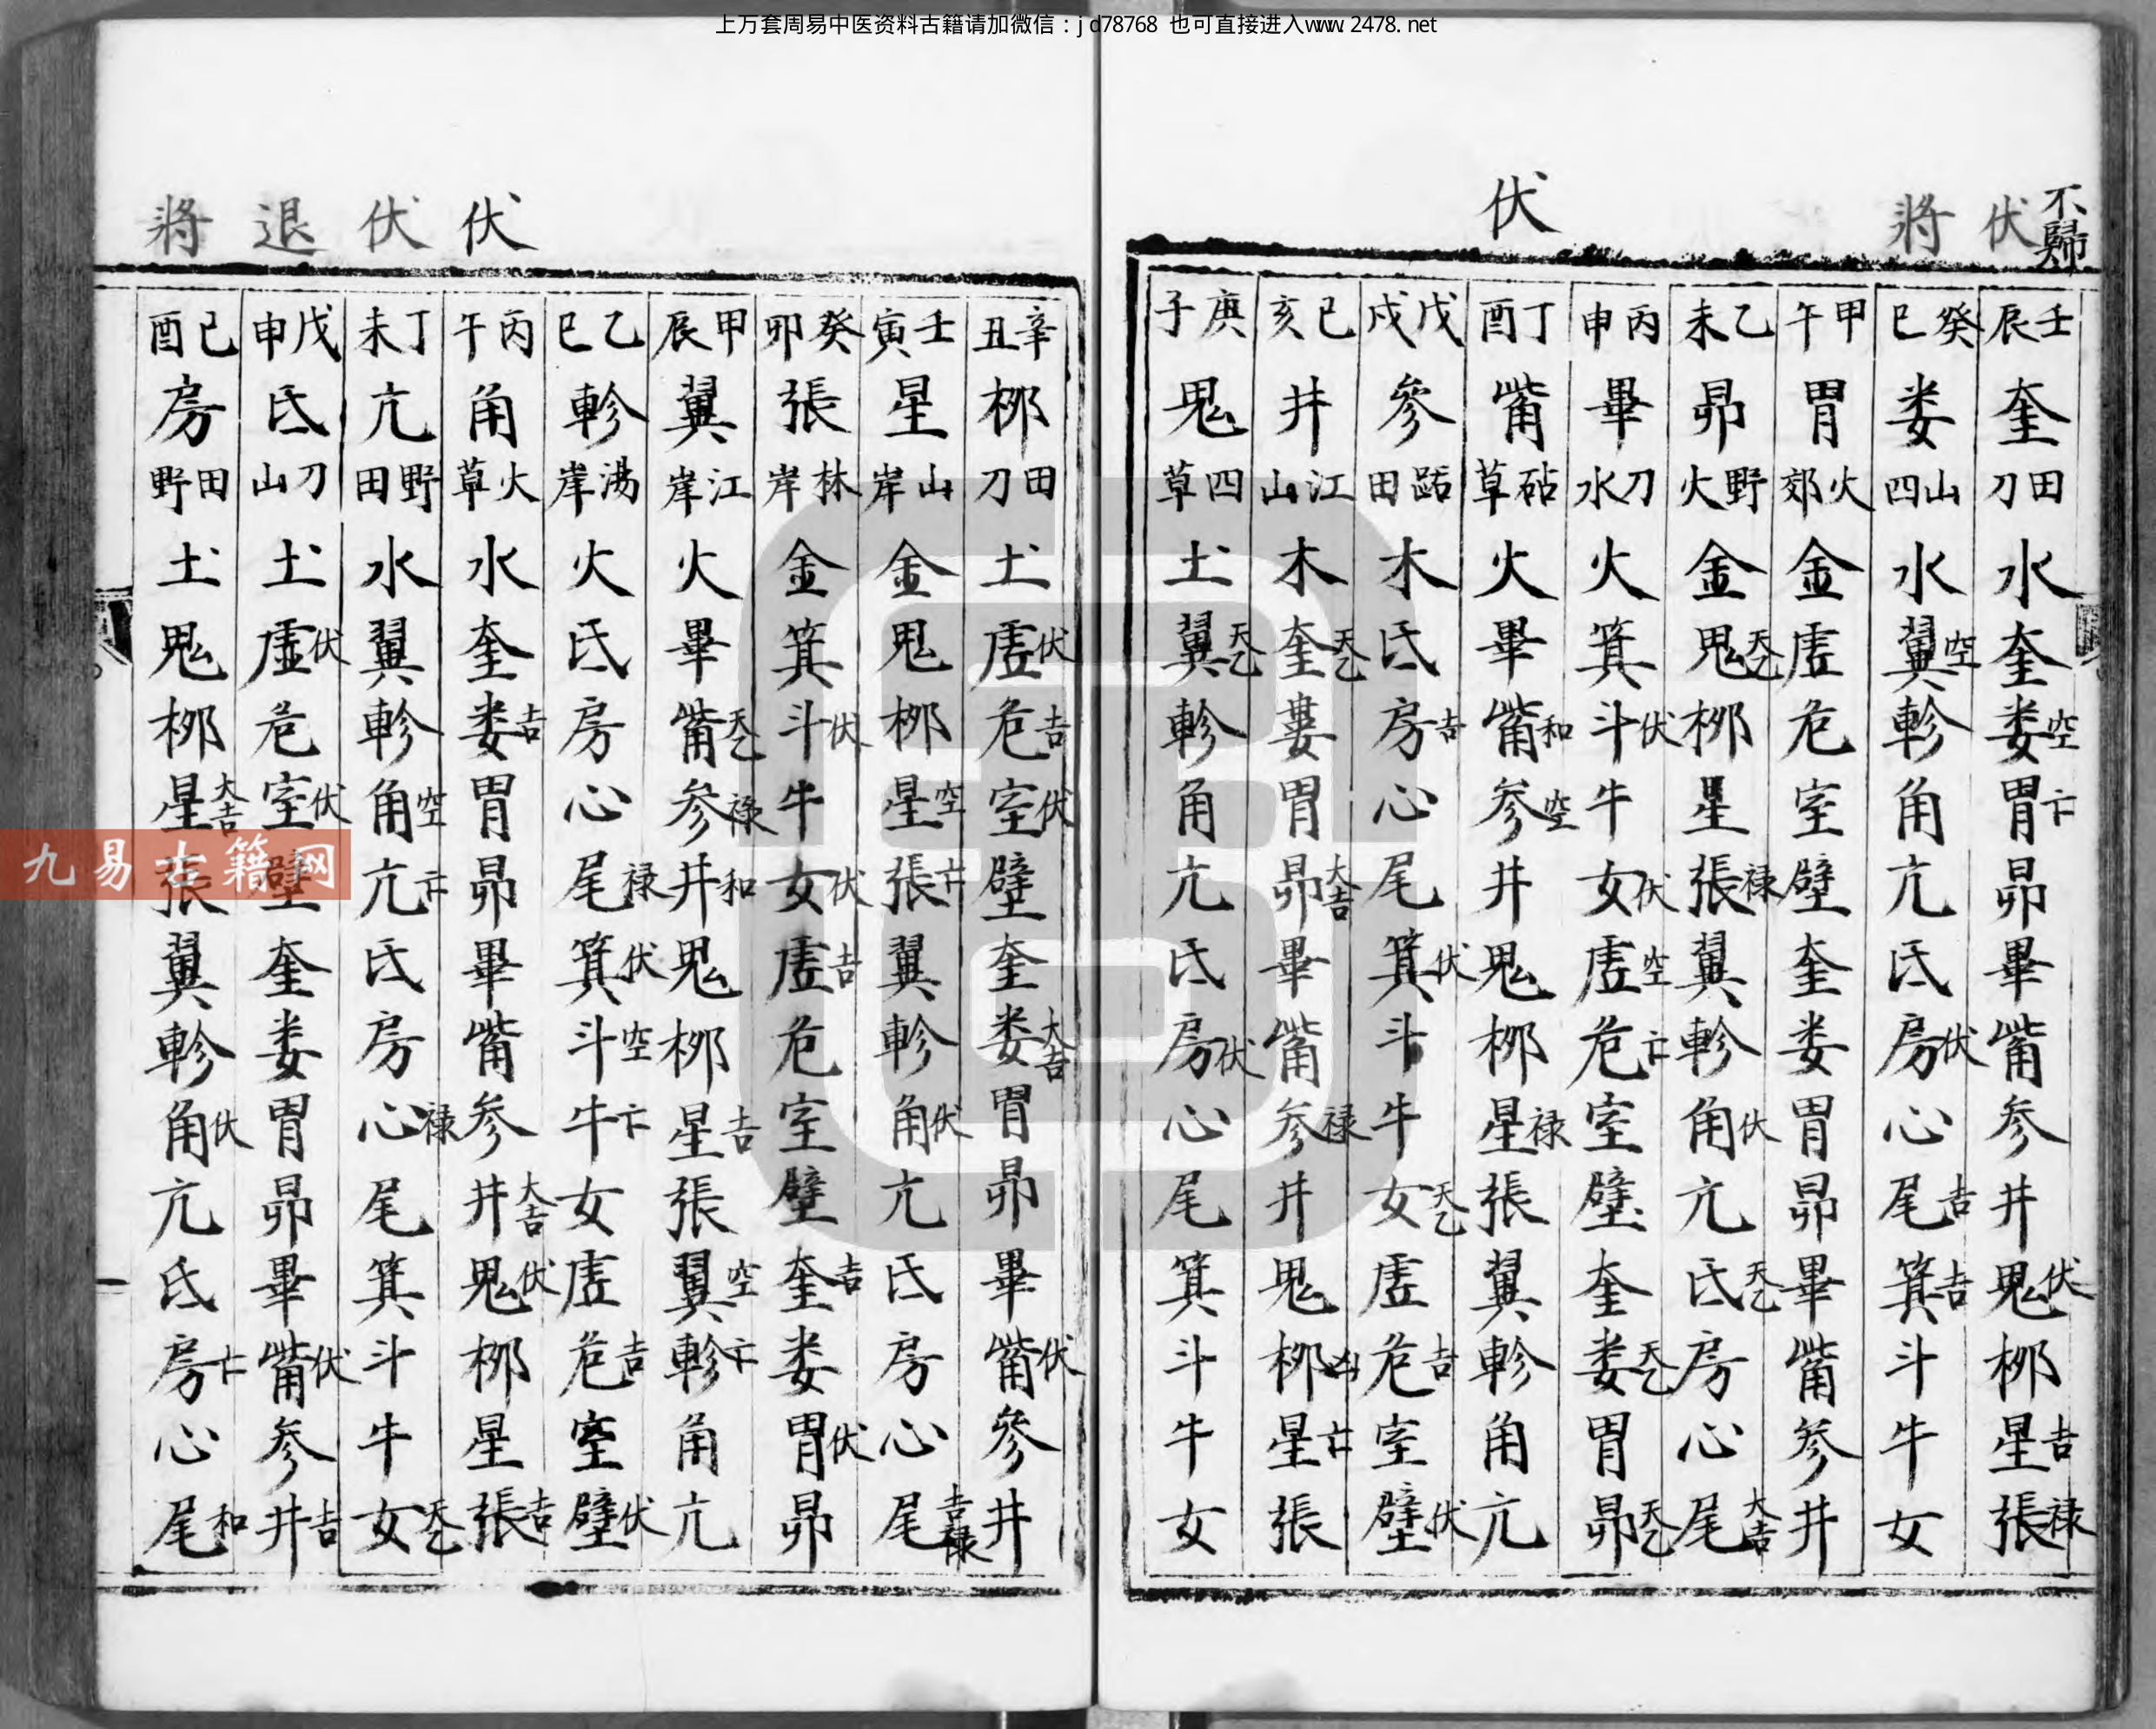 上万套周易中医资料古籍请加微信：jd78768 也可直接进入www.2478.net
不歸
伏
將
伏
壬辰奎田刀水奎娄空胃亡昴畢觜参井鬼伏柳星吉張禄
癸巳娄山四水翼空軫角亢氐房伏心尾吉箕吉斗牛女
甲午胃火郊金虛危室壁奎娄胃昴畢觜参井
乙未昴野火金鬼天乙柳星張禄翼軫角伏亢氐天乙房心尾大吉
丙申畢刀水火箕斗伏牛女伏虛空危亡室壁奎娄天乙胃昴天乙
丁酉觜砧草火畢觜和参空井鬼柳星禄張翼軫角亢
戊戌參踣田木氐房吉心尾箕伏斗牛女天乙虛危吉室壁伏
己亥井江山木奎天乙婁胃昴大吉畢觜参禄井鬼柳凶星亡張
庚子鬼四草土翼天乙軫角亢氐房伏心尾箕斗牛女
伏
伏
退
將
辛丑柳田刀土虛伏危吉室伏壁奎娄大吉胃昴畢觜伏參井
壬寅星山岸金鬼柳星空張亡翼軫角伏亢氐房心尾吉禄
癸卯張林岸金箕斗伏牛女伏虛吉危室壁奎吉娄胃伏昴
甲辰翼江岸火畢觜天乙参禄井和鬼柳星吉張翼空軫亡角亢
乙巳軫湯岸火氐房心尾禄箕伏斗空牛亡女虛危吉室壁伏
丙午角火草水奎娄吉胃昴畢觜参井大吉鬼伏柳星張吉
丁未亢野田水翼軫角空亢亡氐房心禄尾箕斗牛女天乙
戊申氐刀山土虛伏危室伏壁奎娄胃昴畢觜伏参井吉
己酉房田野土鬼柳星大吉張翼軫角伏亢氐房亡心尾和
九易古籍网